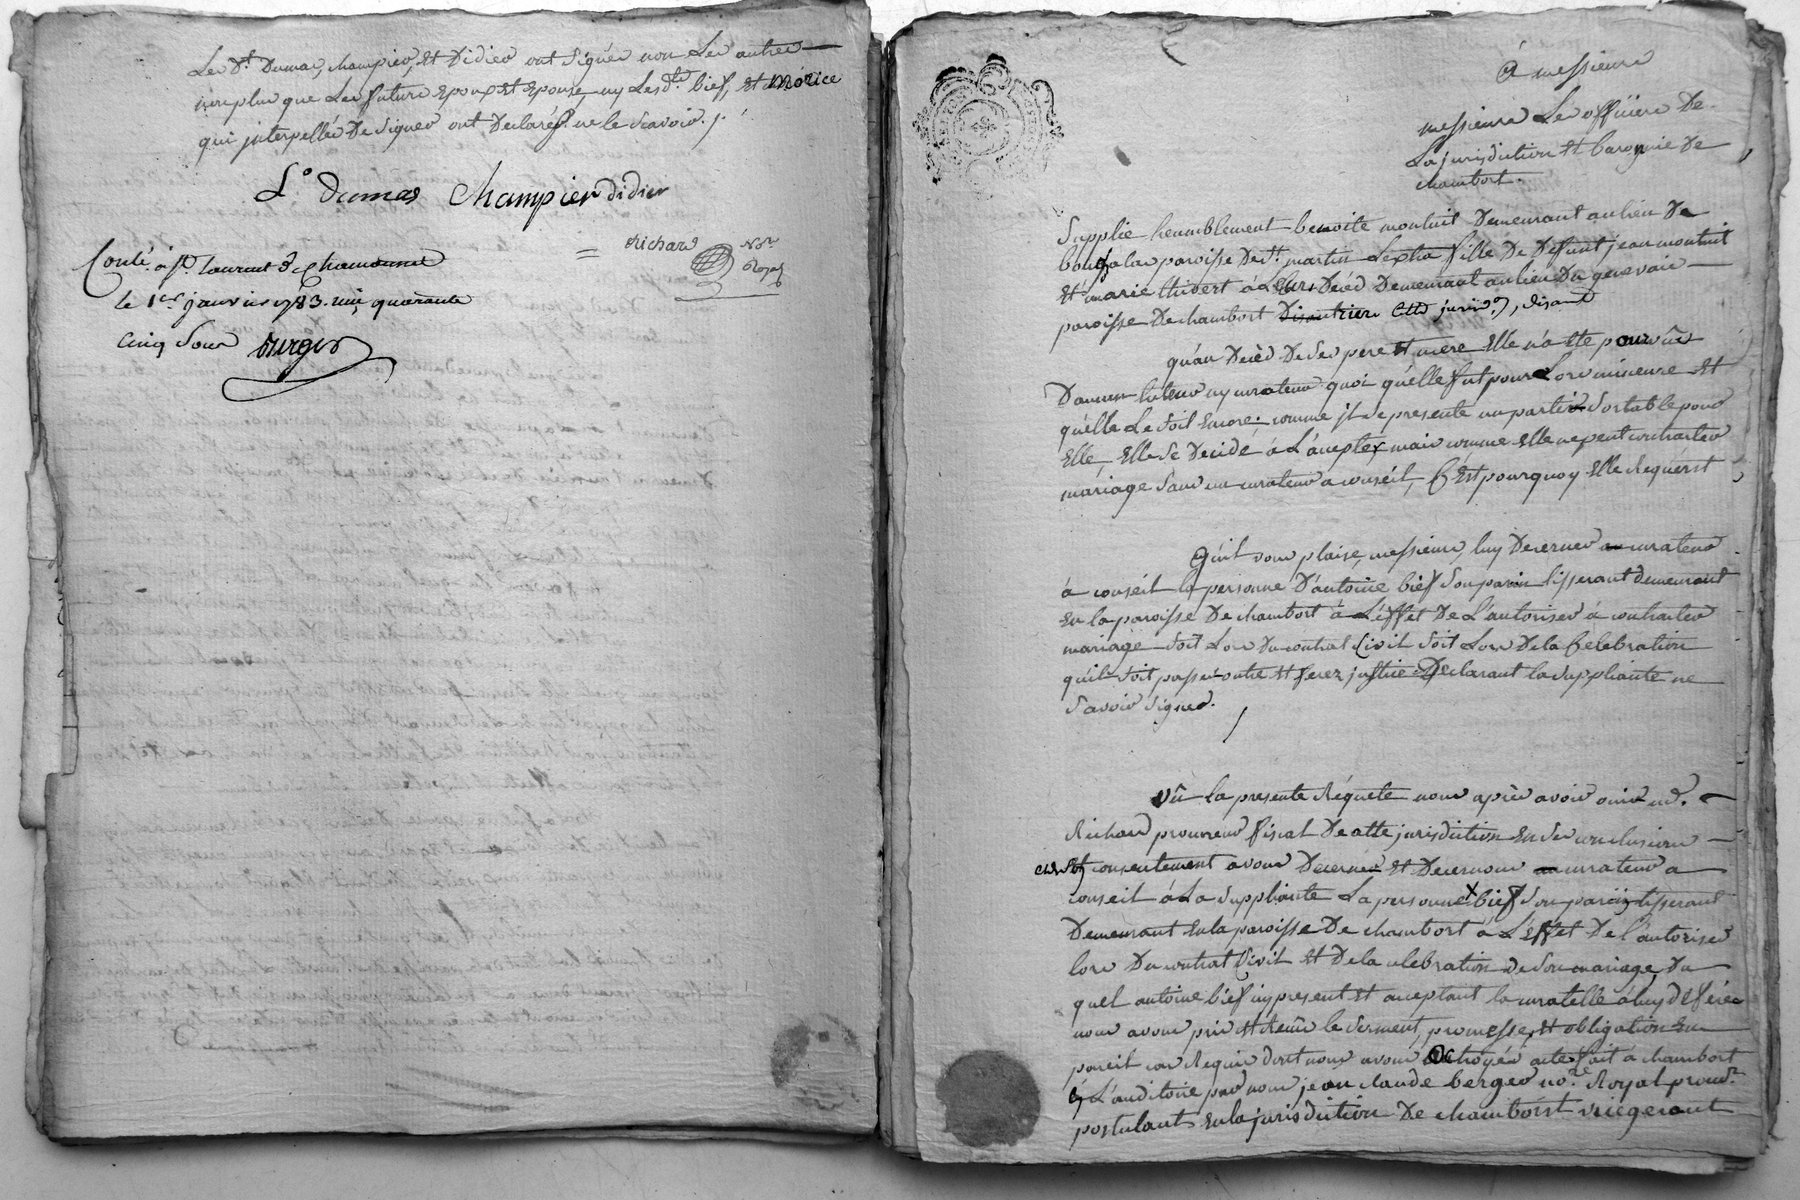 Les Sts Dumas, champier, et Didier ont signés non Les autres
non plus que Les futurs Epoux et Epouse, ny Lesdts bief, et Morice
qui jnterpellés De signer ont Déclarés ne le sçavoir ./.
Lo Dumas Champier didier
Richard Nore Royal
Conlé à st laurent d chamousset
le 1er janvier 1783. reçu quarante
cinq sous Berger
A messieurs
messieurs Les officiers De
La jurisdiction et baronnie De
chambost.
Supplie humblement benoite montuit Demeurant au lieu De
la paroisse De st. martin fille De Défunt jean montuit
Et marie thivert à Leurs Décéd Demeurant au lieu Du genevais
paroisse De chambost Disant cette jurison, disant
qu'au Décèd De ses pere et mere Elle n'a ete pourvûe
D'aucun tuteur ny curateur quoi qu'elle fut pour Lors mineure et
qu'elle Le soit Encore; comme jl se presente un partie sortable pour
Elle, Elle se Decide à L'accepter mais comme Elle ne peut contracter
mariage sans un curateur a conseil, C'est pourquoy Elle Requérst
Qu'il vous plaise, messieurs, luy Decerner un curateur
à conseil la personne D'antoine bief son parin tisserant demeurant
En la paroisse De chambost à L'éffet De L'autoriser à contracter
mariage soit Lors Du contrat Civil soit Lors De la Célebration
qu'il soit passé outre et ferez justice. Déclarant la suppliante ne
sçavoir signer.
Vû la presente Réquete nous après avoir ouis md.
Richard procureur fiscal De cette jurisdiction En ses conclusions
et consentement avons Decerné et Decernons un curateur a
conseil à La suppliante La personne x bief son parin tisserant
Demeurant En la paroisse De chambost à L'éffet De l'autoriser
lors Du contrat Civil et De la celebration de son mariage, Du
quel antoine bief icy present et acceptant la curatelle à luy déférée
nous avons pris et Reçû le serment, promesse, et obligation En
pareil cas Requis dont nous avons octroyés acte fait à chambost
En L'auditoire par nous jean claude berger nore Royal procur
postulant En la jurisdiction De chambost vicegerant